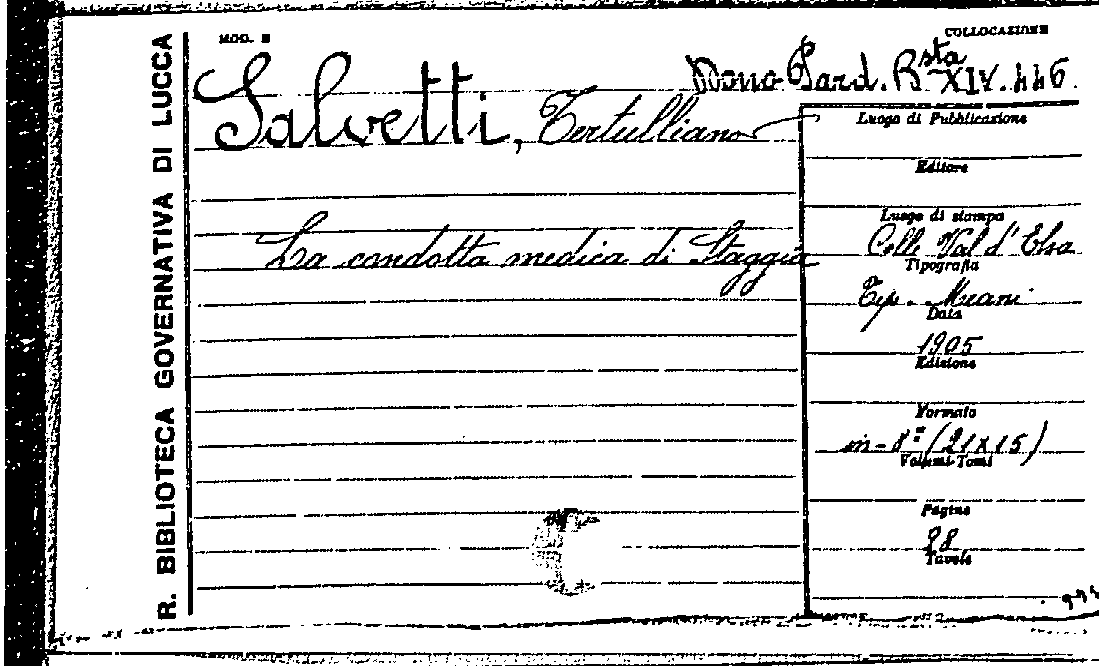 R. BIBLIOTECA GOVERNATIVA DI LUCCA
MOD. B
COLLOCAZIONE
Dono Pard. Bsta XIV. 446.
Salvetti, Tertulliano
La condotta medica di Staggia
Luogo di Pubblicazione
Editore
Luogo di stampa
Colle Val d'Elsa
Tipografia
Tip. Meani
Data
1905
Edizione
Formato
in-8º (21x15)
Volumi-Tomi
Pagine
88
Tavole